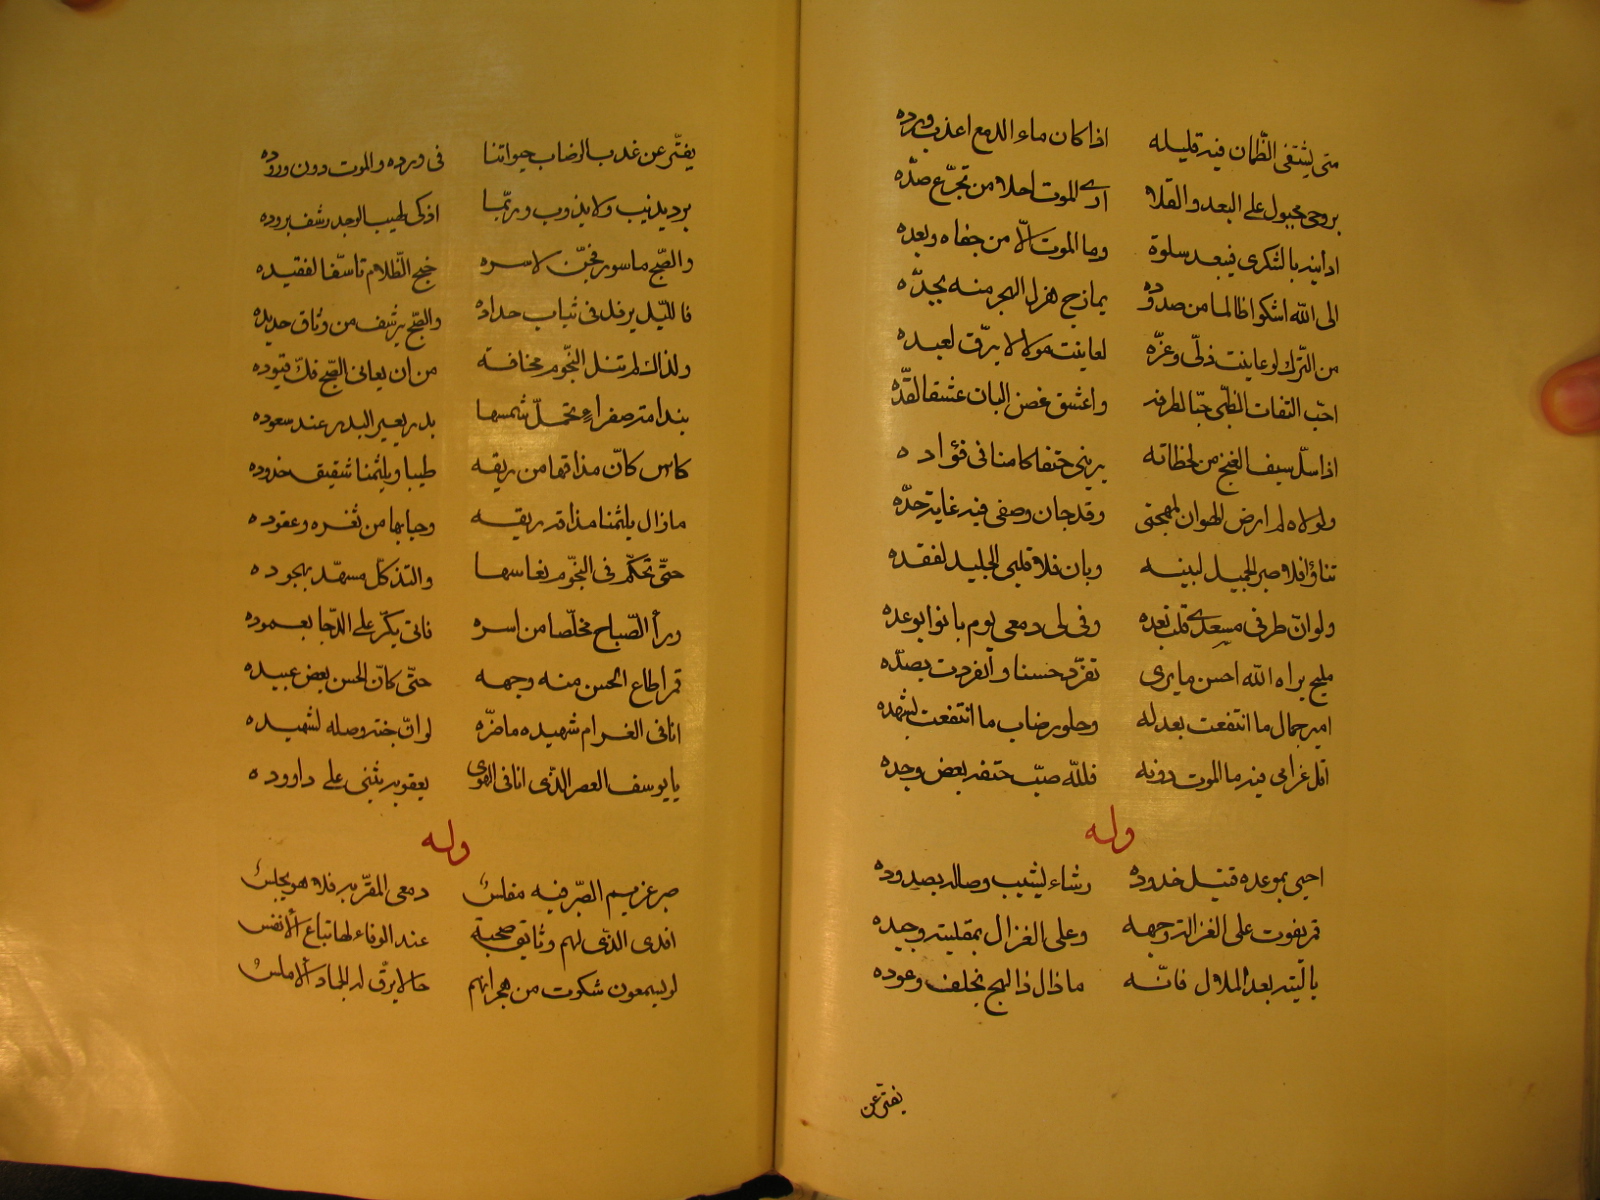 متى يشتفى الظمآن فيه قليله اذا كان ماء الدمع اعذب ورده
بروحى مجبول على البعد والقلا ارى الموت احلا من تجرّع صدّه
ادانيه بالشكرى فيبعد سلوة وما الموت الّا من جفاه وبعده
الى الله اشكوا ظالما من صدوده يمازج هزل الهجر منه بجدّه
من الترك لو عاينت ذلّى وعزّه لعاينت مولا لا يرقّ لعبده
احبّ التفات الظبى حبّا لطرفه واعشق غصن البان عشقا لقدّه
اذا سلّ سيف الغنج من لحظاته يرينى حتفا كامنا فى فؤاده
ولولاه لم ارض الهوان لمهجتى وقد جاز وصفى فيه غاية حدّه
تناؤا فلا صبر الجميل لبينه وبان فلا قلبى الجليد لفقده
ولو انّ طرفى مسعدى قلت بعده وفى لى دمعى يوم بانوا بوعده
مليح يراه الله احسن ما يرى تفرّد حسنا وانفردت بصدّه
امير جمال ما انتفعت بعدله وحلو رضاب ما انتفعت بشهده
اقل غرامى فيه ما الموت دونه فلله صبّ حتفه بعض وجده
وله
احيى بموعده قتيل خدوده رشاء يشيب وصاله بصدوده
قمر يفوت على الغزالة وجهه وعلى الغزال بمقلتيه وجيده
يا ليته بعد الملال فانّه ما ذال ذا لهج بخلف وعوده
يفتر عن
يفترّ عن عذب الرضاب حيواتنا فى ورده والموت دون وروده
برد يذيب ولا يذوب وربّما اذكى لهيب الوجد رشف بروده
والصّبح ماسور فحنّ لاسره جنح الظّلام تاسّفا لفقيده
فالليل يرفل فى ثياب حداده والصّبح يرشف من وثاق حديده
ولذاك لم تنل النجوم مخافة من ان يعانى الصّبح فكّ قيوده
بمدامة صفراء تحمل شمسها بدر يعير البدر عند سعوده
كاس كانّ مذاقها من ريقه طيبا ويلثمنا شقيق خدوده
ما زال يلثمنا مذاقه ريقه وحبابها من ثغره وعقوده
حتّى تحكّم فى النجوم نعاسها والتذ كلّ مسهّد بهجوده
ورأ الصّباح مخلّصا من اسره فاتى يكرّ على الدّجا بعموده
قمر اطاع الحسن منه وجهه حتّى كانّ الحسن بعض عبيده
انا فى الغرام شهيده ما ضرّه لو انّ جنّة وصله لشهيده
يا يوسف العصر الذّى انا فى الهوى يعقوبه بثنى على داووده
وله
صبر غريم الصّبر فيه مفلس دمعى المقرّ به فلا هو يحبس
افدى الذّى لهم وثايق صحبة عند الوفاء لها تباع الانفس
لو يسمعون شكوت من هجرانهم حالا يرقّ له الجماد الاملس